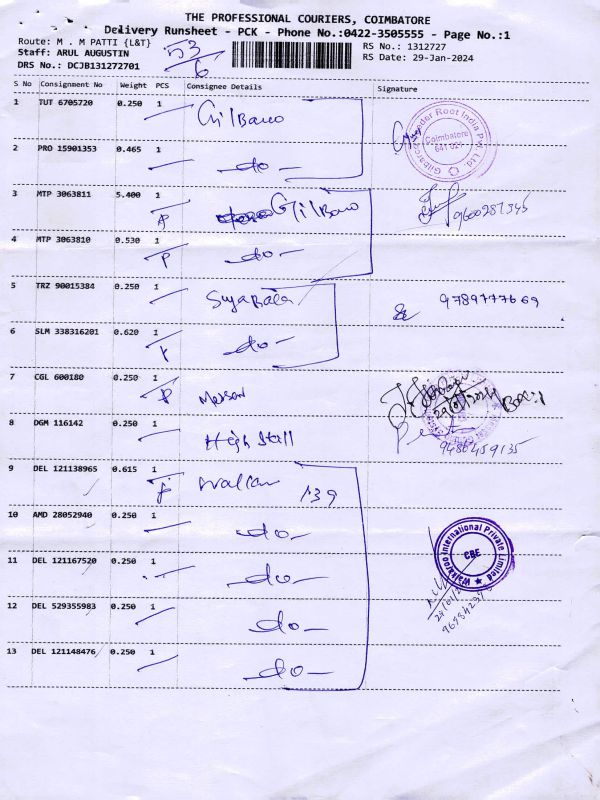 THE PROFESSIONAL COURIERS, COIMBATORE
Delivery Runsheet - PCK - Phone No.:0422-3505555 - Page No.:1
Route: M . M PATTI {L&T}
Staff: ARUL AUGUSTIN
DRS No.: DCJB131272701
53
6
RS No.: 1312727
RS Date: 29-Jan-2024
S No Consignment No Weight PCS Consignee Details Signature
1 TUT 6705720 0.250 1 Gilbarco
Gilbarco Veeder Root India Pvt. Ltd.
Coimbatore
641 021
2 PRO 15901353 0.465 1 do
3 MTP 3063811 5.400 1 P Gilbarco
9600287345
4 MTP 3063810 0.530 1 P do
5 TRZ 90015384 0.250 1 Sujabala 9789777669
6 SLM 338316201 0.620 1 do
7 CGL 600180 0.250 1 P
8 DGM 116142 0.250 1 High Stall
9486459135
9 DEL 121138965 0.615 1 139
10 AMD 28052940 0.250 1 do
Walkaroo International Private Limited
CBE
11 DEL 121167520 0.250 1 do
12 DEL 529355983 0.250 1 do
13 DEL 121148476 0.250 1 do